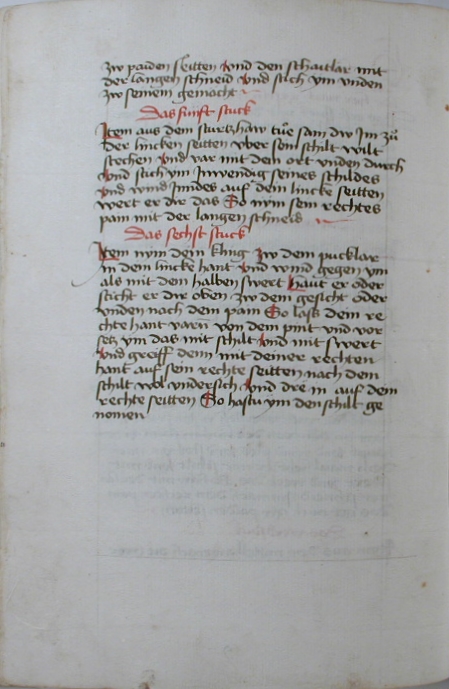 zw paiden seitten vnd den schaitlar mit
der langen schneid vnd stich ym vnden
zw seinem gemacht
Das funft stuck
Item aus dem sturtzhaw tue sam dw Im zů
der lincken seitten vber sein schilt wilt
stechen vnd var mit den ort vnden durch
vnd stich ym Inwendig seines schildes
vnd wind Inndes auf dein lincke seitten
wert er dir das So nym sein rechtes
pain mit der langen schneid
Das sechst stuck
Item nym dein kling zw dem pucklar
in dein lincke hant vnd wind gegen ym
als mit dem halben swert Haut er oder
sticht er dir oben zw dem gesicht oder
vnden nach dem pain So lass dein re
chte hant varn von dem pint vnd vor
secz ym das mit schilt vnd mit swert
vnd greiff denn mit deiner rechten
hant auf sein rechte seitten nach dem
schilt wol vndersich vnd dre in auf dein
rechte seitten So hastu ym den schilt ge
nomen